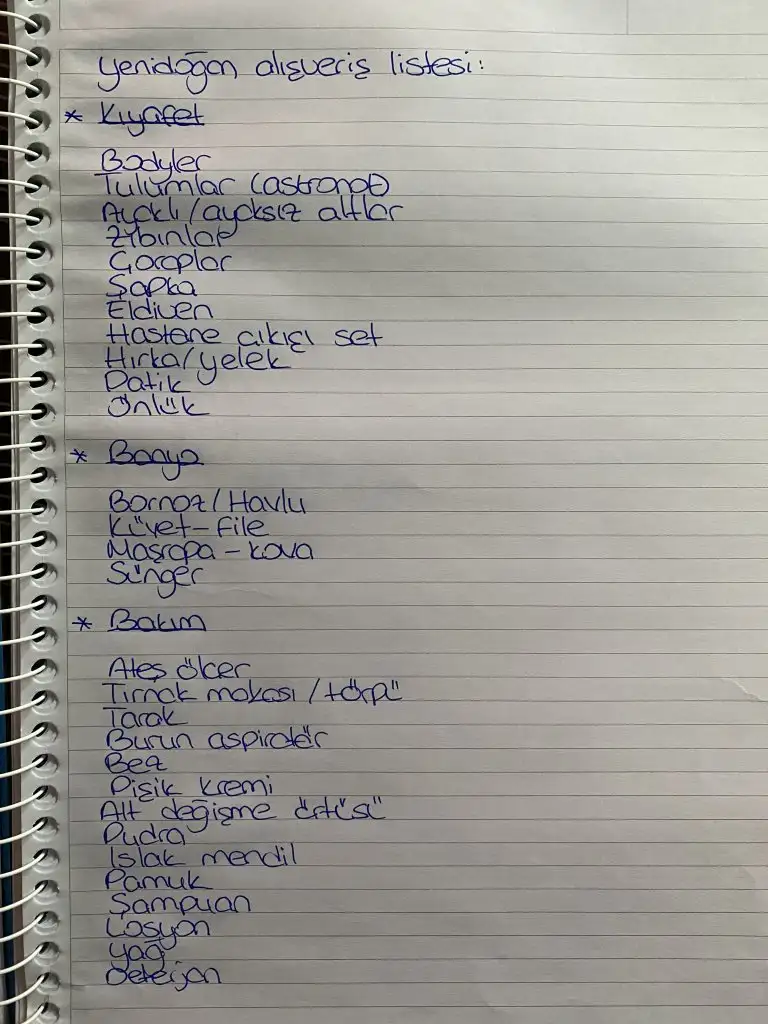 Yenidoğan alışveriş listesi:
* Kıyafet
Bodyler
Tulumlar (astronot)
Ayaklı/ayaksız altlar
Zıbınlar
Çoraplar
Şapka
Eldiven
Hastane çıkışı set
Hırka/yelek
Patik
Önlük
* Banyo
Bornoz/Havlu
Küvet-file
Maşrapa-kova
Sünger
* Bakım
Ateş ölçer
Tırnak makası/törpü
Tarak
Burun aspiratör
Bez
Pişik kremi
Alt değişme örtüsü
Pudra
Islak mendil
Pamuk
Şampuan
Losyon
Yağ
Deterjan